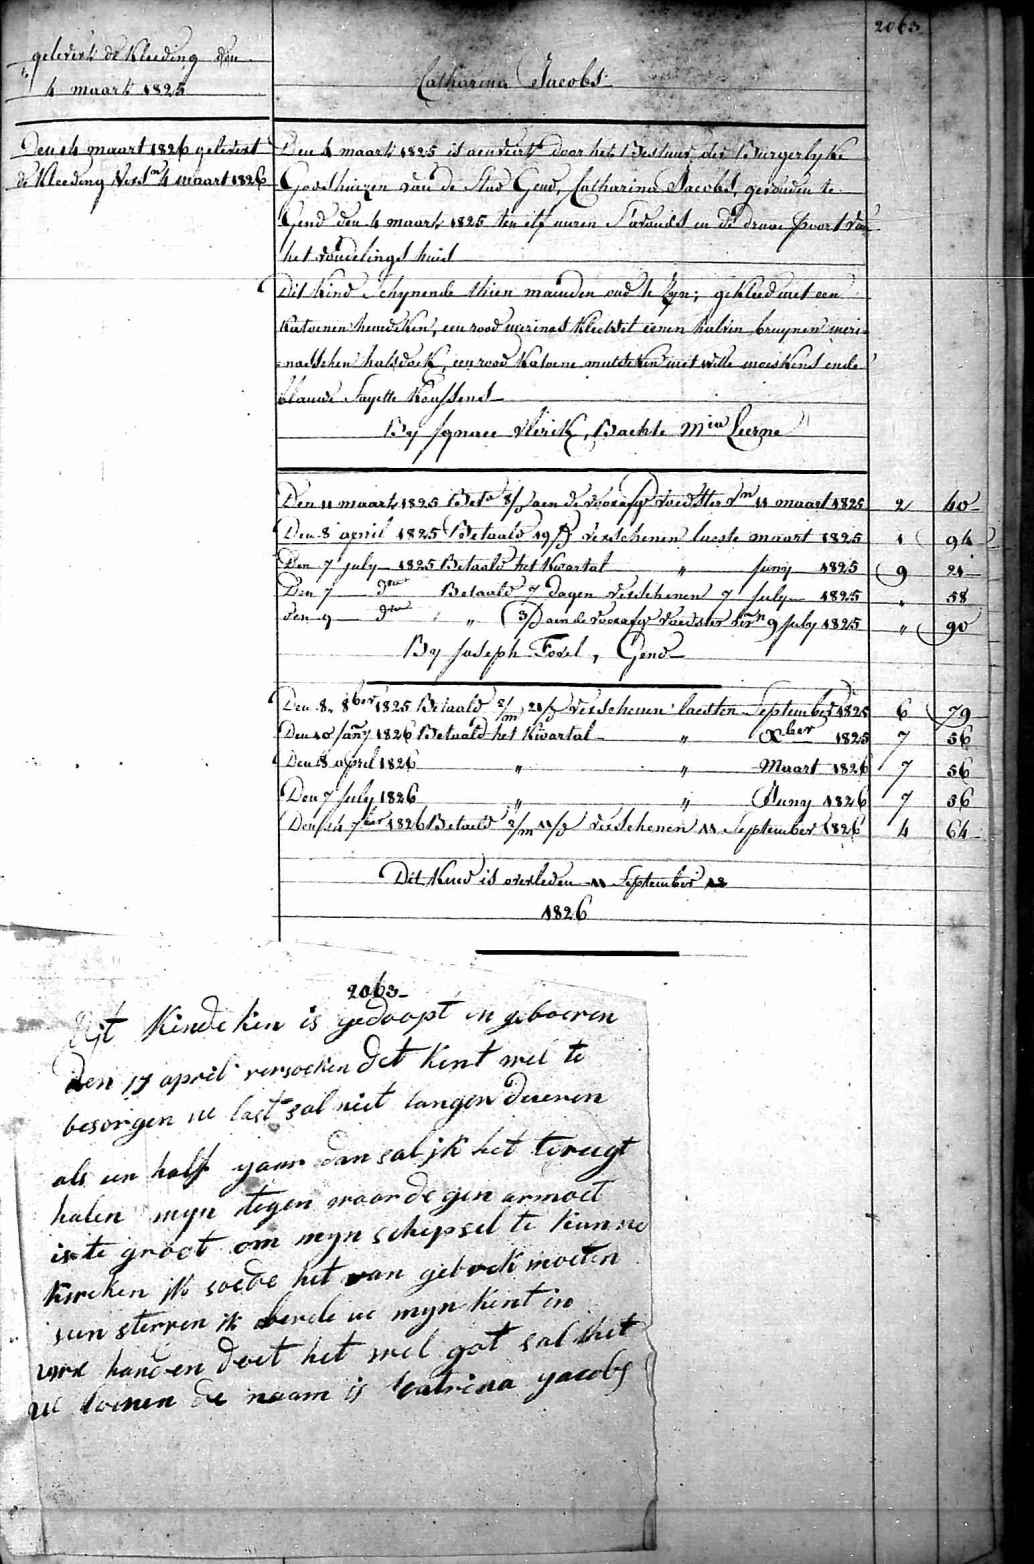 2063
gelevert de Kleeding den
4 maart 1825
Catharina Jacobs
Den 14 maart 1826 gelevert
de Kleeding Versn 4 maart 1826
Den 4 maart 1825 is aenveert door het Bestuur der Burgerlyke
Godshuizen van de Stad Gend, Catharina Jacobs, gevonden te
Gend den 4 maart 1825 ten elf uuren S'avonds in de draae poort van
het vondelings huis
Dit Kind Schynende thien maenden oud te Zyn; gekleed met een
Katoenen hemdeken, een rood merinos Kleedst eenen halven bruynen meri-
nosschen halsdoek, een rood Katoene mutseken met witte moeskens ende
blauwe Sayette Koussens
By Ignace Vlerick, Bachte Mia Leerne
Den 11 maart 1825 Bet. 8/D aen de voorafg Voedster Vn 11 maart 1825 2 40
Den 8 april 1825 Betaald 19/D verschenen leeste maart 1825 1 94
Den 7 july 1825 Betaald het Kwartal " Juny 1825 9 21
Den 7 dto Betaald 7 dagen verschenen 7 July 1825 " 58
den 9 dto " 3/D aen de voorafg Voedster vern 9 July 1825 " 90
By Joseph Forel, Gend
Den 8 8ber 1825 Betaald 2/m 21/D verschenen laesten September 1825 6 79
Den 10 Jany 1826 Betaald het Kwartal " Xber 1825 7 56
Den 8 april 1826 " " Maart 1826 7 56
Den 7 July 1826 " " Juny 1826 7 56
Den 11 7ber 1826 Betaeld 2/m 11/D verschenen 11 September 1826 4 64
Dit Kind is overleden 11 September 18
1826
2063
Dit Kindeken is gedoopt en geboeren
Den 17 april versoeken det kent wel te
besorgen ue last sal niet langer dueren
als een half yaar dan sal ik het terugt
halen myn tegen woordegen armoet
is te groot om myn schepsel te kunne
kweken ik soede het van gebrek moeten
sien sterven ik berele ue myn kint in
uwe handen doet het wel got sal het
ue loenen de naam is Catrina yacobs